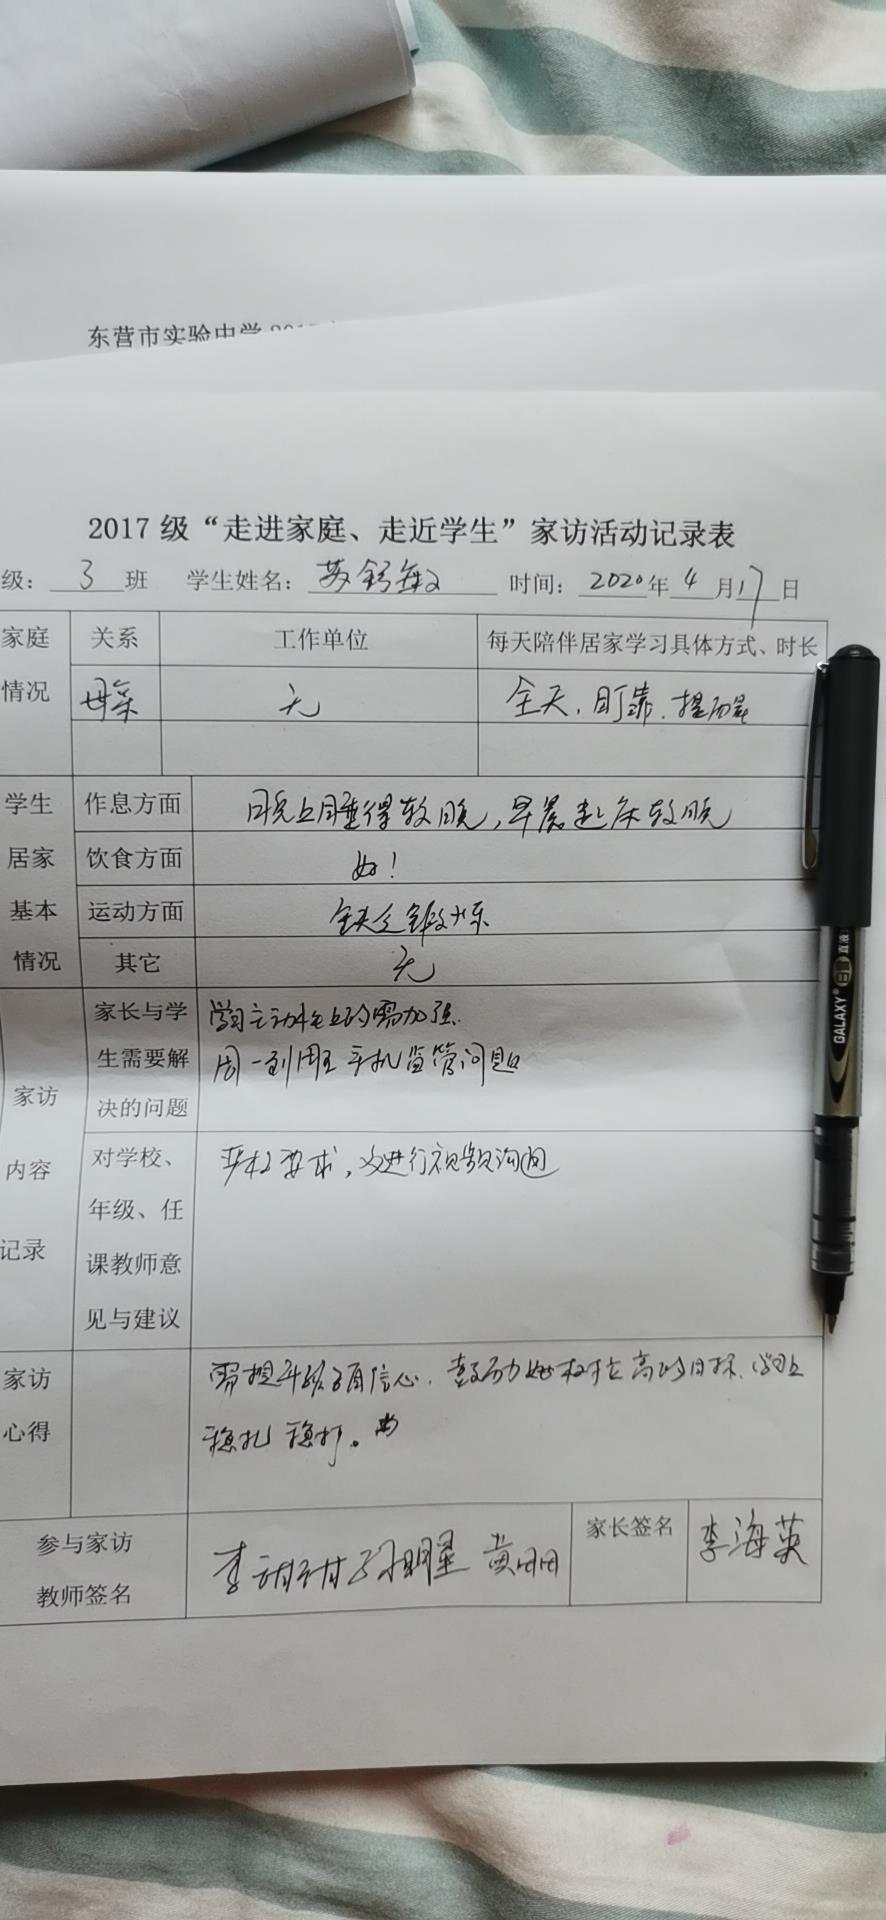 东营市实验中学
2017 级“走进家庭、走近学生”家访活动记录表
级: 3 班 学生姓名: 苏 敏 时间: 2020年 4 月 17 日
家庭 关系 工作单位 每天陪伴居家学习具体方式、时长
情况 母亲 无 全天,盯靠,提醒
学生 作息方面 晚上睡得较晚,早晨起床较晚
居家 饮食方面 好!
基本 运动方面 缺乏锻炼
情况 其它 无
家长与学 学习主动性上的需加强.
生需要解 周一到周五手机监管问题
家访 决的问题
内容 对学校、 严格要求,多进行视频沟通
年级、任
记录 课教师意
见与建议
家访 需提升 自信心.鼓励她树立高的目标.学习上
心得 稳扎稳打。
参与家访 李甜甜 孙明星 黄丽丽 家长签名 李海英
教师签名
GALAXY®
直液